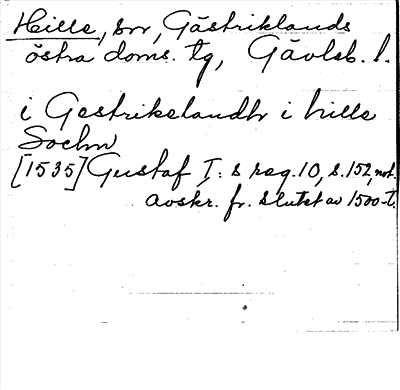 Hille, sn, Gästriklands
östra doms. tg, Gävleb. l.
i Gestrikelandh i hille
Sochn
[1535] Gustaf I:s reg. 10, s. 152, not.
avskr. fr. slutet av 1500-t.